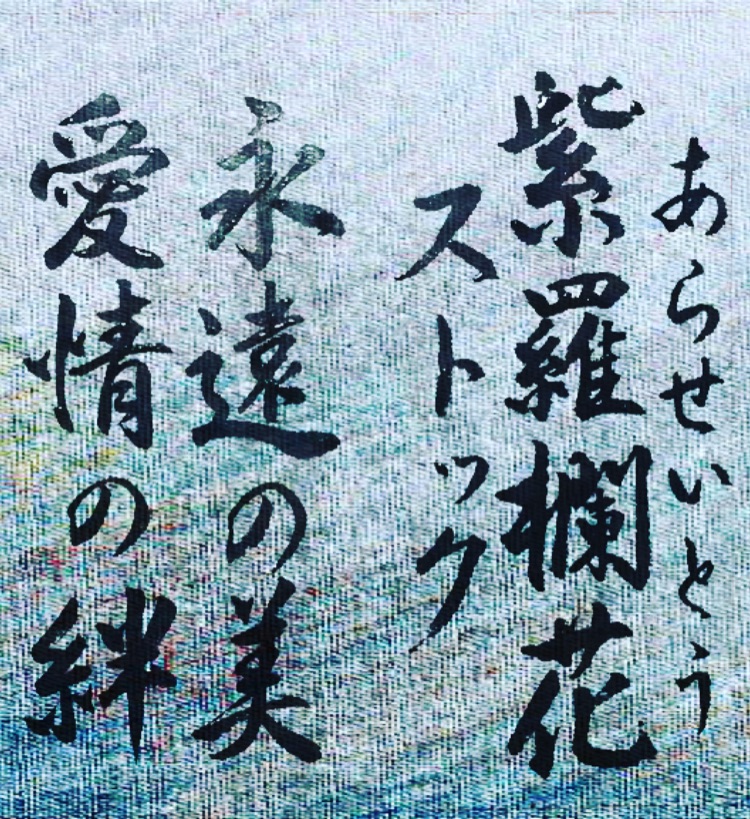 あらせいとう
紫羅欄花
ストック
永遠の美
愛情の絆